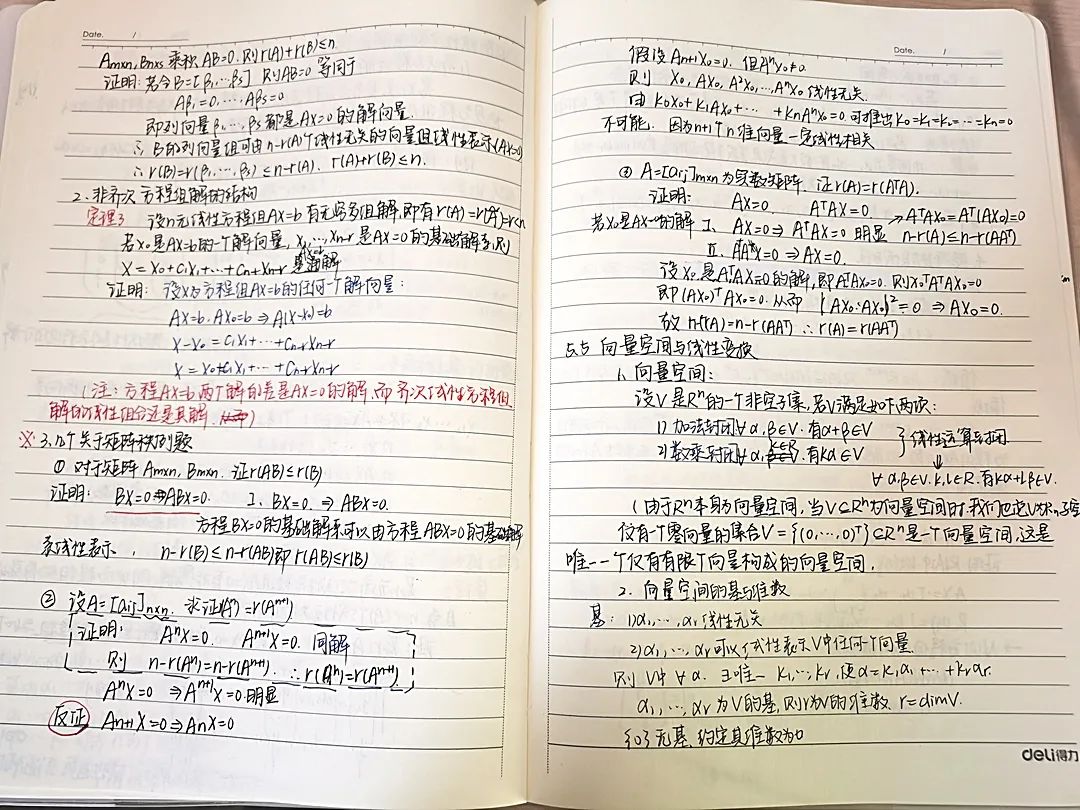 Date. /
Amxn, Bnxs 乘积 AB=0. 则r(A)+r(B)≤n.
证明: 若令B=[β1,…βs] 则AB=0 等同于
Aβ1=0,…,Aβs=0
即列向量β1,…,βs都是AX=0的解向量.
∴ B的列向量组可由n-r(A)个线性无关的向量组线性表示(AX=0)
∴ r(B)=r(β1,…,βs)≤n-r(A). r(A)+r(B)≤n.
2. 非齐次方程组解的结构
定理3 设n元线性方程组AX=b有无穷多组解,即有r(A)=r(Ã)=r<n
若x0是AX=b的一个解向量, x1,…,Xn-r是AX=0的基础解系,则
X=X0+C1X1+…+Cn-rXn-r 通解
证明: 设X为方程组AX=b的任何一个解向量:
AX=b. AX0=b ⇒ A(X-X0)=b
X-X0=C1X1+…+Cn-rXn-r
X=X0+C1X1+…+Cn-rXn-r
(注: 方程AX=b两个解的差是AX=0的解,而齐次线性方程组
解的线性组合还是其解.)
※ 3. 几个关于矩阵秩的题
① 对于矩阵Amxn, Bmxn. 证r(AB)≤r(B)
证明: BX=0⇒ABX=0. I. BX=0. ⇒ ABX=0.
方程BX=0的基础解系可以由方程ABX=0的基础解
系线性表示, n-r(B)≤n-r(AB)即r(AB)≤r(B)
② 设A=[aij]nxn. 求证r(Aⁿ)=r(Aⁿ⁺¹)
证明: AⁿX=0. Aⁿ⁺¹X=0. 同解
则 n-r(Aⁿ)=n-r(Aⁿ⁺¹). ∴r(Aⁿ)=r(Aⁿ⁺¹)
AⁿX=0 ⇒Aⁿ⁺¹X=0.明显
反证 An+1X=0⇒AnX=0
Date. /
假设An+1X0=0. 但Aⁿx0≠0
则 X0, AX0, A²X0,…,AⁿX0线性无关.
由 K0X0+K1AX0+…+KnAⁿX0=0.可推出K0=K1=K2=…=Kn=0
不可能. 因为n+1个n维向量一定线性相关
③ A=[aij]mxn为实数矩阵. 证r(A)=r(AᵀA).
证明: AX=0. AᵀAX=0. ↗AᵀAX0=Aᵀ(AX0)=0
若X0是AX=0的解 I. AX=0⇒AᵀAX=0 明显 n-r(A)≤n-r(AAᵀ)
II. AᵀAX=0⇒AX=0.
设X0是AᵀAX=0的解,即AᵀAX0=0. 则X0ᵀAᵀAX0=0
即(AX0)ᵀAX0=0. 从而 |AX0·AX0|²=0 ⇒AX0=0.
故n-r(A)=n-r(AAᵀ) ∴r(A)=r(AAᵀ)
5.5 向量空间与线性变换
1. 向量空间:
设V是Rⁿ的一个非空子集,若V满足如下两项:
1) 加法封闭∀α,β∈V.有α+β∈V
2) 数乘封闭∀α∈V.有Kα∈V } 线性运算封闭
↓
∀α,β∈V.K,L∈R.有Kα+Lβ∈V.
(由于Rⁿ本身为向量空间,当V⊂Rⁿ为向量空间时.我们也说V为Rⁿ子空
仅有一个零向量的集合V={(0,…,0)ᵀ}⊂Rⁿ是一个向量空间,这是
唯一一个仅有有限个向量构成的向量空间.
2. 向量空间的基与维数
基: 1)α1,…,αr线性无关
2)α1,…,αr可以线性表示V中任何个向量.
则V中∀α.∃唯一K1,…,Kr,使α=K1α1+…+Krαr.
α1,…,αr为V的基,则r为V的维数 r=dimV.
{0}无基.约定其维数为0
deli得力